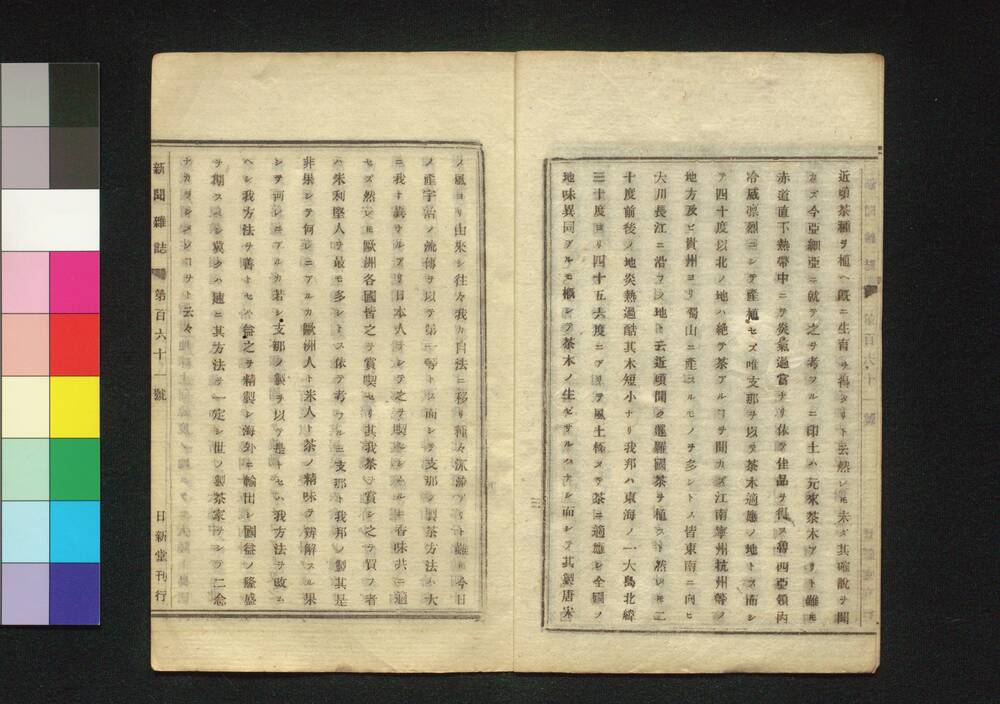 近頃茶種ヲ植ヘ既ニ生育ヲ得タリト云然レ𪜈未タ其確說ヲ聞
カズ今亞細亞ニ就テ之ヲ考フルニ印土ハ元來茶木アリト雖𪜈
赤道直下熱帶中ニテ炎氣過當ナリ依テ佳品ヲ得ス魯西亞領內
冷威凛烈ニシテ產植セズ唯支那ヲ以テ茶木適應ノ地トス而シ
テ四十度以北ノ地ハ絶テ茶アルヿヲ聞カズ江南寧州杭州等ノ
地方及ビ貴州ヨリ蜀山ニ產スルモノヲ多シトス皆東南ニ向ヒ
大川長江ニ沿フノ地ト云近頃聞ク暹羅國茶ヲ植スト然レ𪜈二
十度前後ノ地炎熱過酷其木短小ナリ我邦ハ東海ノ一大島北緯
三十度ヨリ四十五六度ニアリテ風土極メテ茶ニ適應シ全國ノ
地味異同アルモ概シテ茶木ノ生ゼザルハナシ而シテ其製唐宋
三
ノ風ヨリ由來シ往々我カ自法ニ移リ種々流派アリト雖𪜈今日
ノ產宇治ノ流傳ヲ以テ第一等トス而シテ支那ノ製茶方法ハ大
ニ我ト異ナルアリ日本人ニシテ之ヲ喫シ香味共ニ適
セズ然レ𪜈歐洲各國皆之ヲ賞喫セリ其我茶ヲ賞シ之ヲ買フ者
ハ米利堅人ヲ最モ多シトス依テ考フルニ支那ト我邦ノ製其是
非果シテ何レニアルカ歐洲人ト米人ト茶ノ精味ヲ辨解スル果
シテ何レニアルカ若シ支那ノ製ヲ以テ是トセハ我方法ヲ改ム
ヘシ我方法ヲ善トセハ益之ヲ精製シ海外ニ輸出シ國益ノ隆盛
ヲ期スヘシ冀クハ速ニ其方法ヲ一定シ世ノ製茶家ヲシテ二念
ナカラシメンヿヲト云々
新聞雜誌 第百六十一號 日新堂刊行